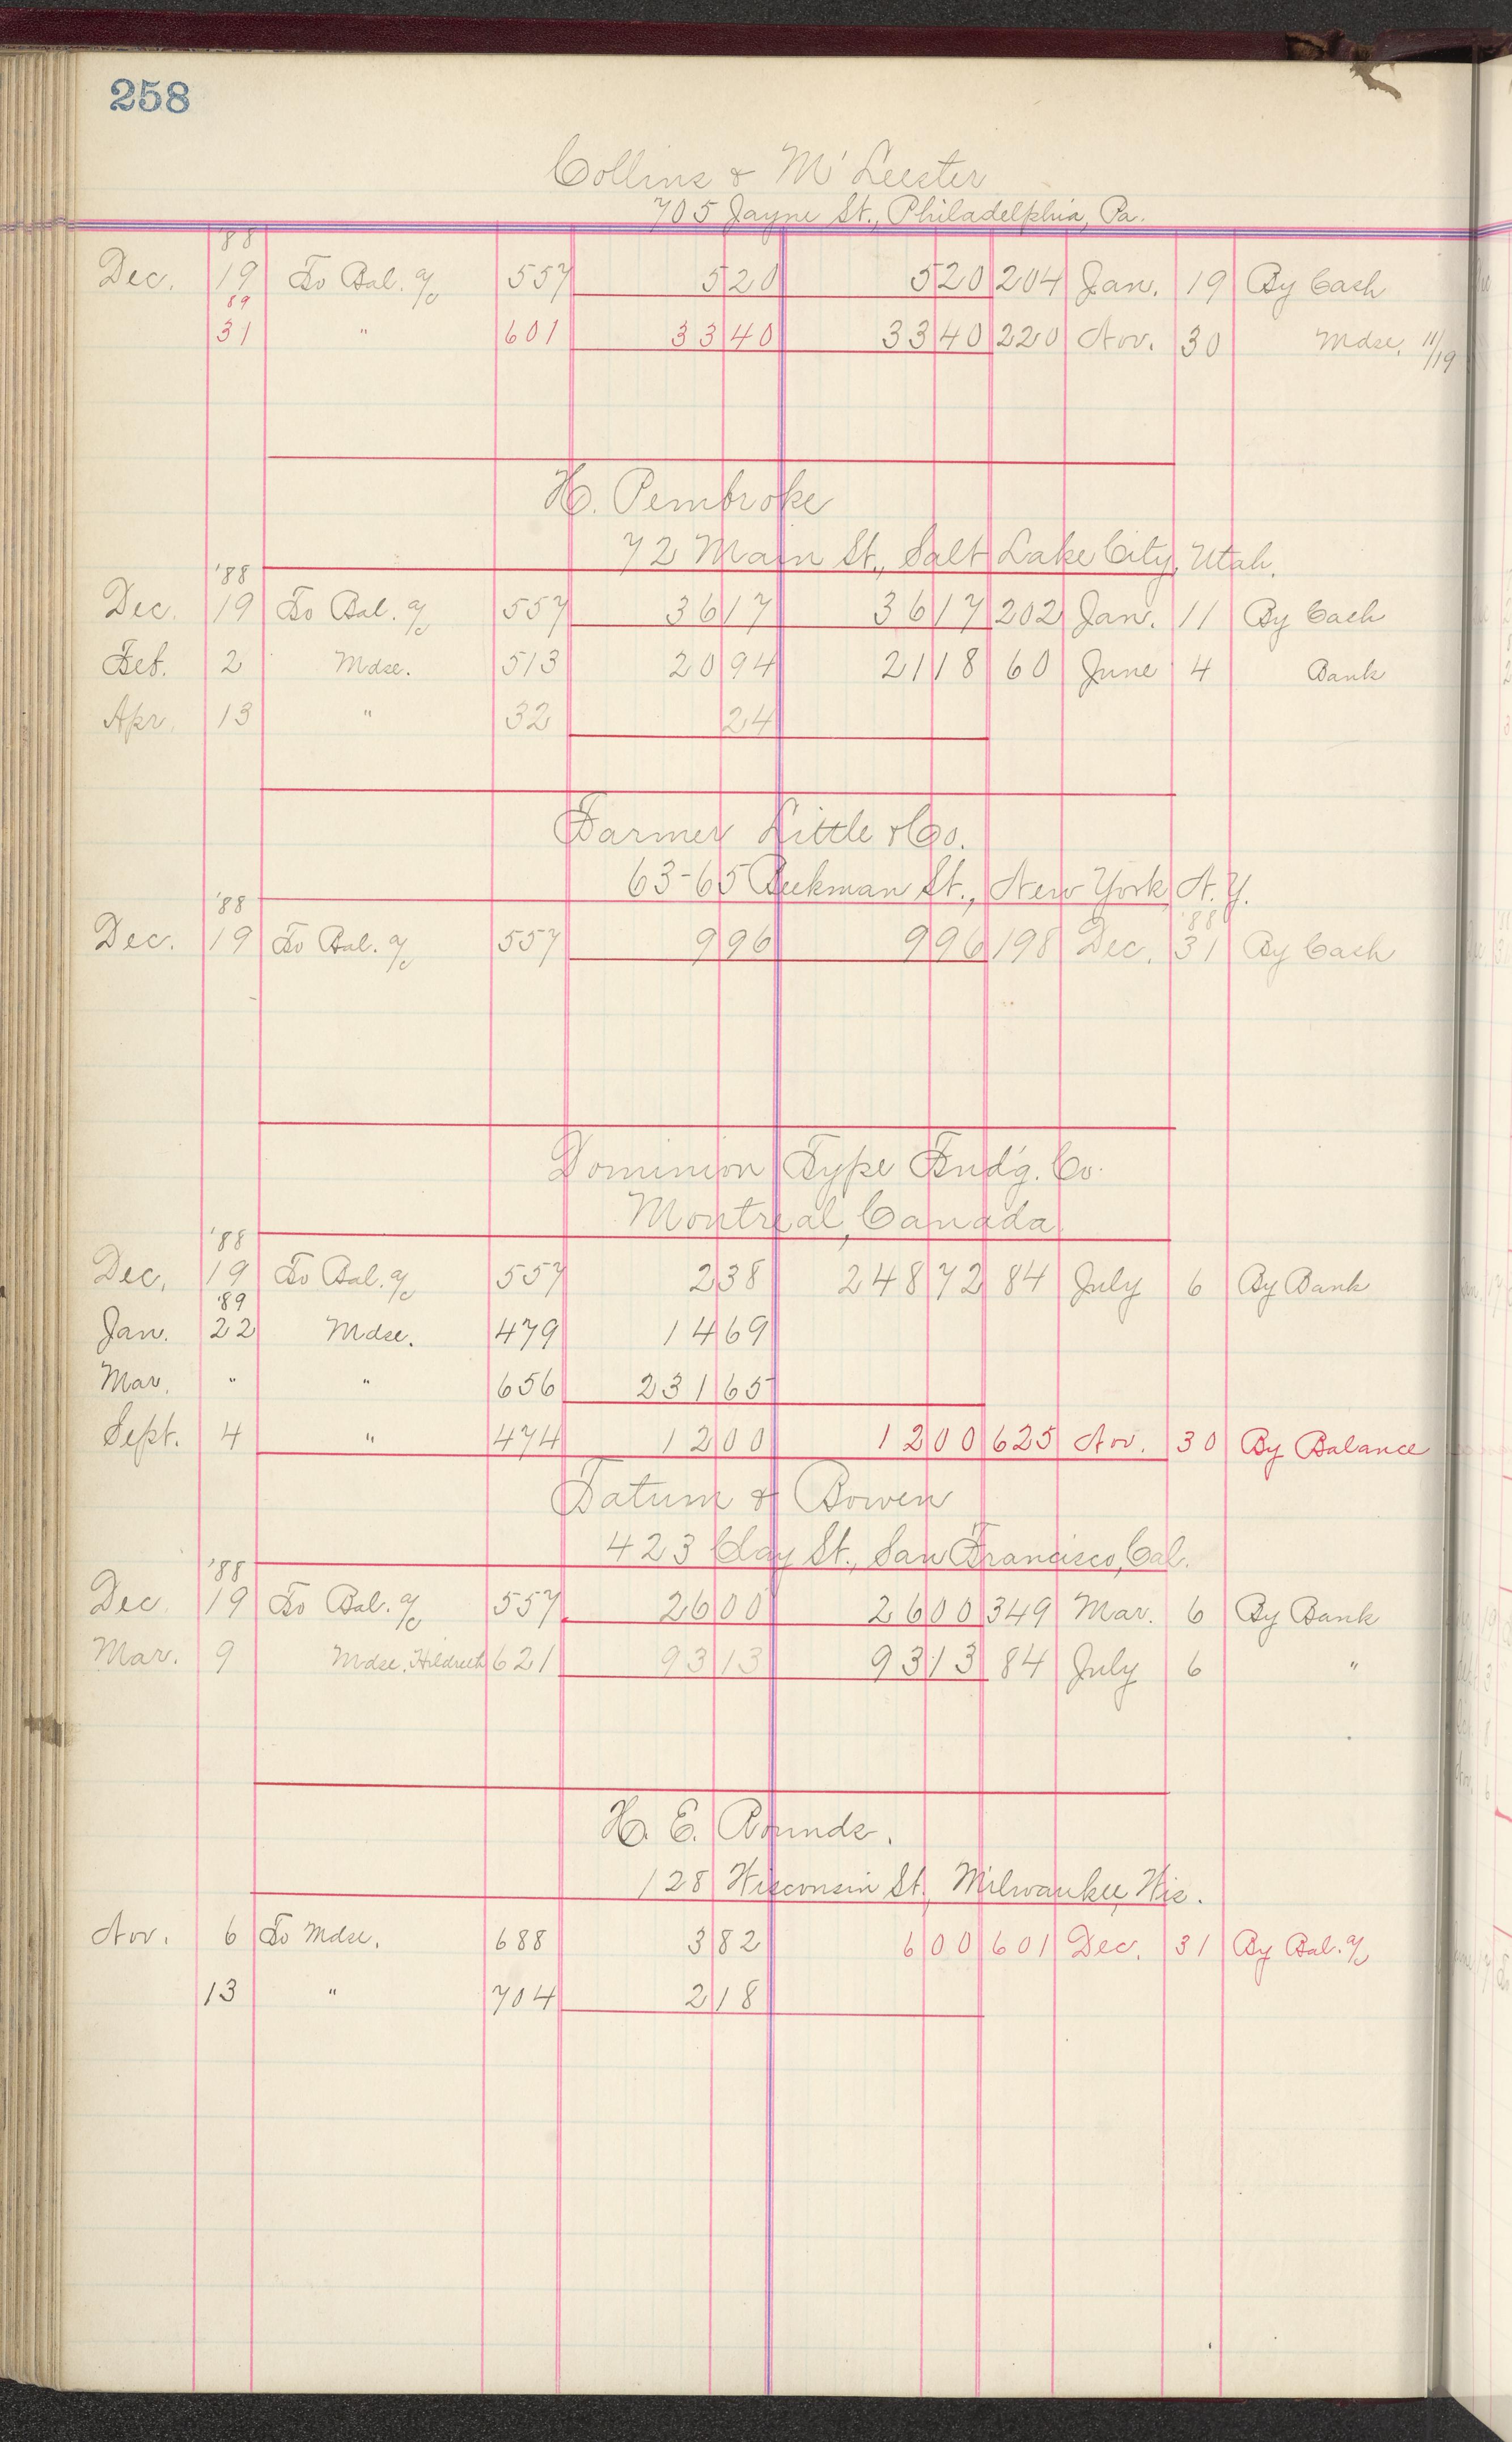 258
Collins & Mc Leester
705 Jayne St., Philadelphia, Pa.
'88
Dec. 19 To Bal. a/c 557 5 20 5 20 204 Jan. 19 By Cash
89
31 " 601 33 40 33 40 220 Nov. 30 Mdse. 11/19
H. Pembroke
72 Main St., Salt Lake City, Utah.
'88
Dec. 19 To Bal. a/c 557 36 17 36 17 202 Jan. 11 By Cash
Feb. 2 Mdse. 513 20 94 21 18 60 June 4 Bank
Apr. 13 " 32 24
Farmer Little & Co.
63-65 Beekman St., New York, N.Y.
'88 '88
Dec. 19 To Bal. a/c 557 9 96 9 96 198 Dec. 31 By Cash
Dominion Type Fndg. Co.
Montreal, Canada
'88
Dec. 19 To Bal. a/c 557 2 38 248 72 84 July 6 By Bank
'89
Jan. 22 Mdse. 479 14 69
Mar. " " 656 231 65
Sept. 4 " 474 12 00 12 00 625 Nov. 30 By Balance
Tatum & Bowen
423 Clay St., San Francisco, Cal.
'88
Dec. 19 To Bal. a/c 557 26 00 26 00 349 Mar. 6 By Bank
Mar. 9 Mdse. Hildreth 621 93 13 93 13 84 July 6 "
H. E. Rounds.
128 Wisconsin St., Milwaukee, Wis.
Nov. 6 To Mdse. 688 3 82 6 00 601 Dec. 31 By Bal. a/c
13 " 704 2 18